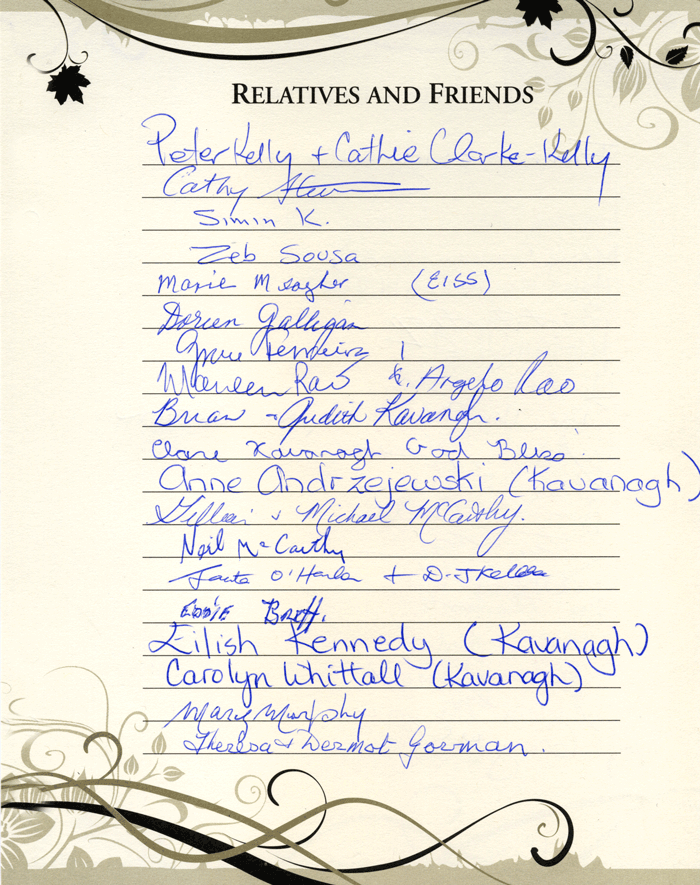 RELATIVES AND FRIENDS
Peter Kelly + Cathie Clarke-Kelly
Cathy
Simin K.
Zeb Sousa
Marie Meagher (EISS)
Doreen Galligan
Maureen Rao & Rao
Brian + Judith Kavanagh.
Clare Kavanagh God Bless
Anne Andrzejewski (Kavanagh)
Gillian & Michael McCarthy.
Neil McCarthy
O'Hanlon +
EDDIE
Eilish Kennedy (Kavanagh)
Carolyn Whittall (Kavanagh)
Mary Murphy
Theresa & Dermot Gorman.